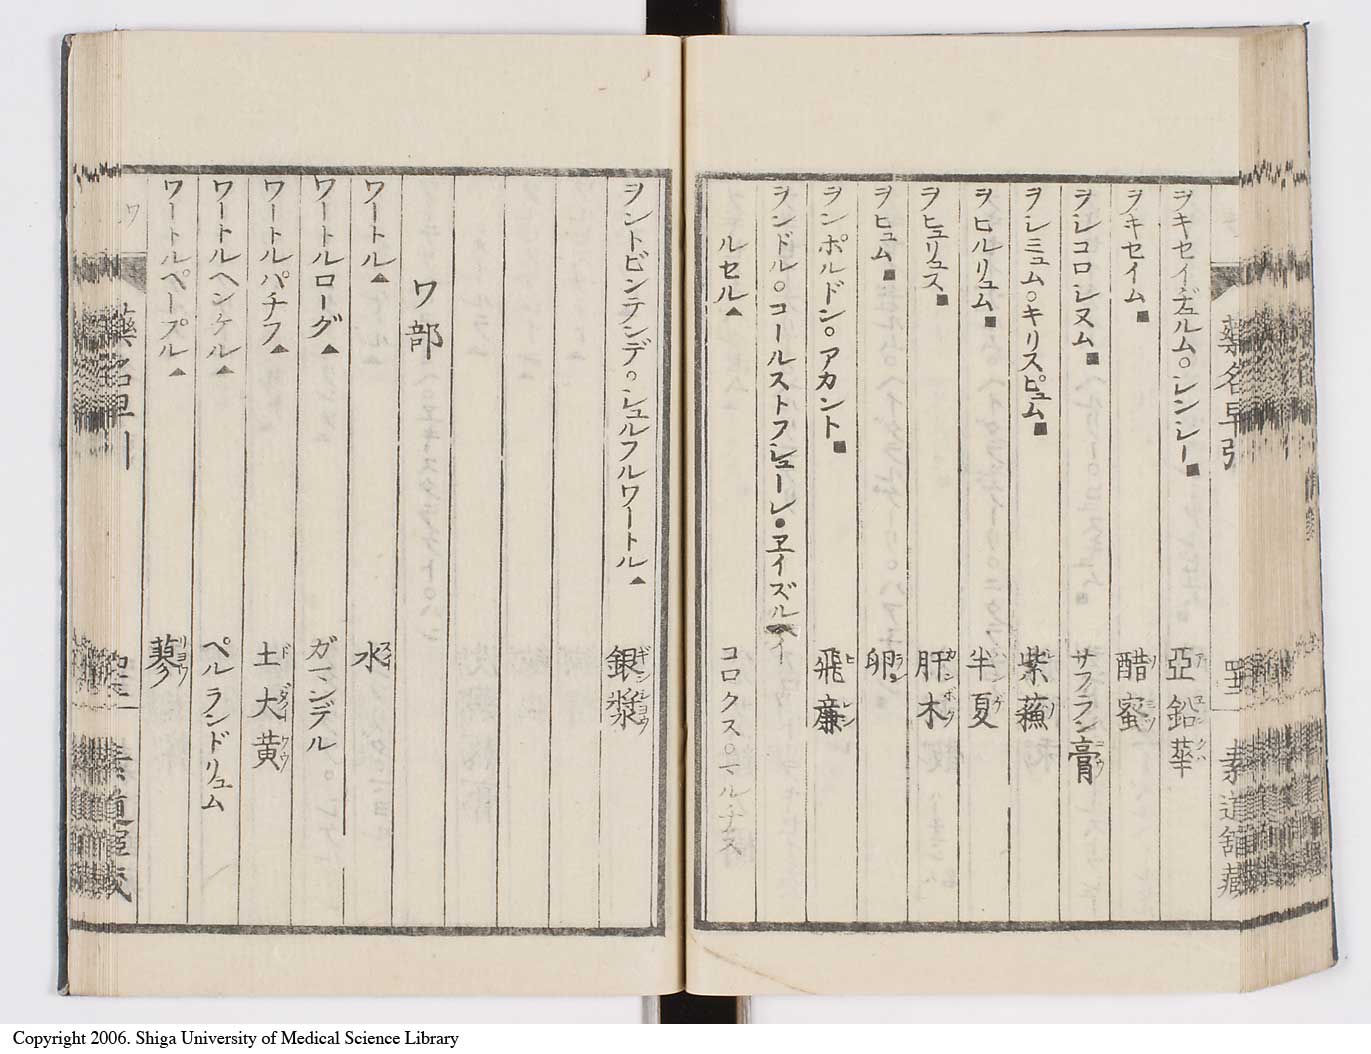 薬名早引
ヲキセイデュルム○レンシー■ 亞鉛華
ヲキセイム■ 醋蜜
ヲシコロシヌム■ サフラン膏
ヲシミュム○キリスピュム■ 紫蘓
ヲヒルリュム■ 半夏
ヲヒュリュス■ 肝木
ヲヒュム■ 卵
ヲンポルドン○アカント■ 飛廉
ヲンドル○コールストフシューレ●ヱイズル
ルセル▲ コロクス○マルチス
素道舘藏
ヲントビンテンデ○シュルフルワートル▲ 銀漿
ワ部
ワートル▲ 水
ワートルローグ▲ ガマンデル
ワートルパチフ▲ 土大黄
ワートルヘンケル▲ ペルランドリュム
ワートルペープル▲ 蓼
Copyright 2006. Shiga University of Medical Science Library